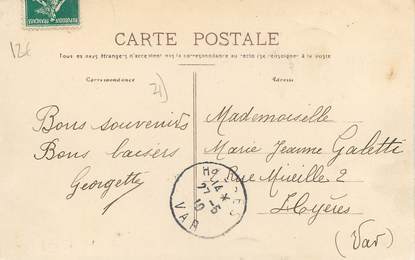 12€
CARTE POSTALE
Tous les pays étrangers n'acceptent pas la correspondance au recto (se renseigner à la poste)
Correspondance
21
Adresse
Bons souvenirs
Bons baisers
Georgette
Mademoiselle
Marie Jeanne Galetti
Rue Mireille 2
Hyères
(Var)
14 *
27-5
10
VAR